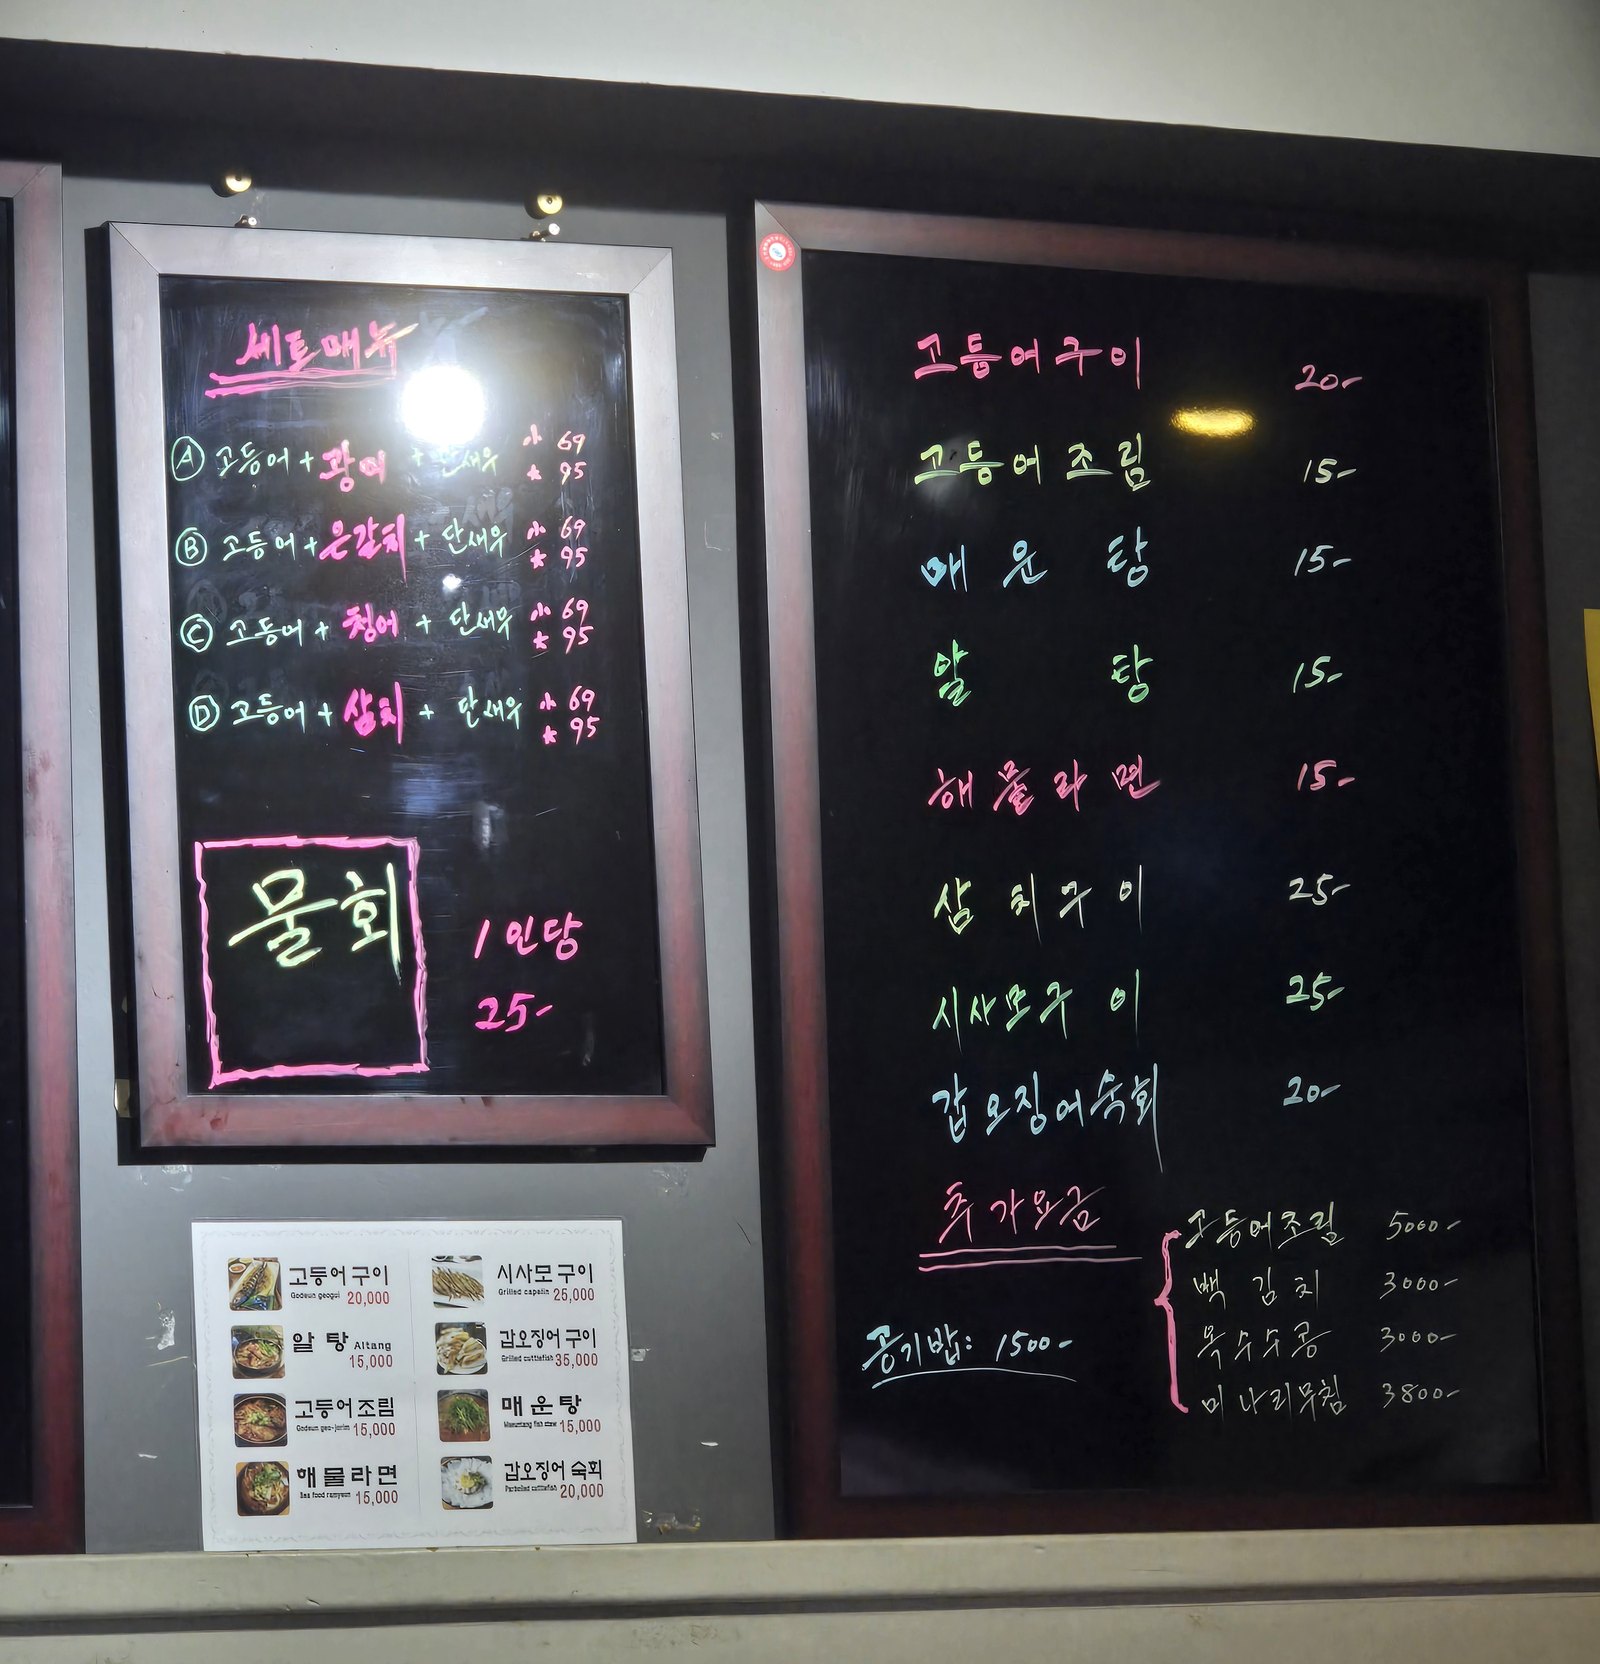 세트메뉴
Ⓐ 고등어 + 광어 + 단새우 小 69
大 95
Ⓑ 고등어 + 은갈치 + 단새우 小 69
大 95
Ⓒ 고등어 + 청어 + 단새우 小 69
大 95
Ⓓ 고등어 + 삼치 + 단새우 小 69
大 95
물회
1인당
25-
고등어구이 20,000
Godeun geogui
알탕 Altang
15,000
고등어조림
Godeun geo-jorim 15,000
해물라면
Sea food ramyeun 15,000
시사모구이
Grilled capelin 25,000
갑오징어구이
Grilled cuttlefish 35,000
매운탕
Maeuntang fish stew 15,000
갑오징어숙회
Parboiled cuttlefish 20,000
고등어구이 20-
고등어조림 15-
매운탕 15-
알탕 15-
해물라면 15-
삼치구이 25-
시사모구이 25-
갑오징어숙회 20-
추가요금
고등어조림 5000-
백김치 3000-
옥수수콩 3000-
미나리무침 3800-
공기밥: 1500-